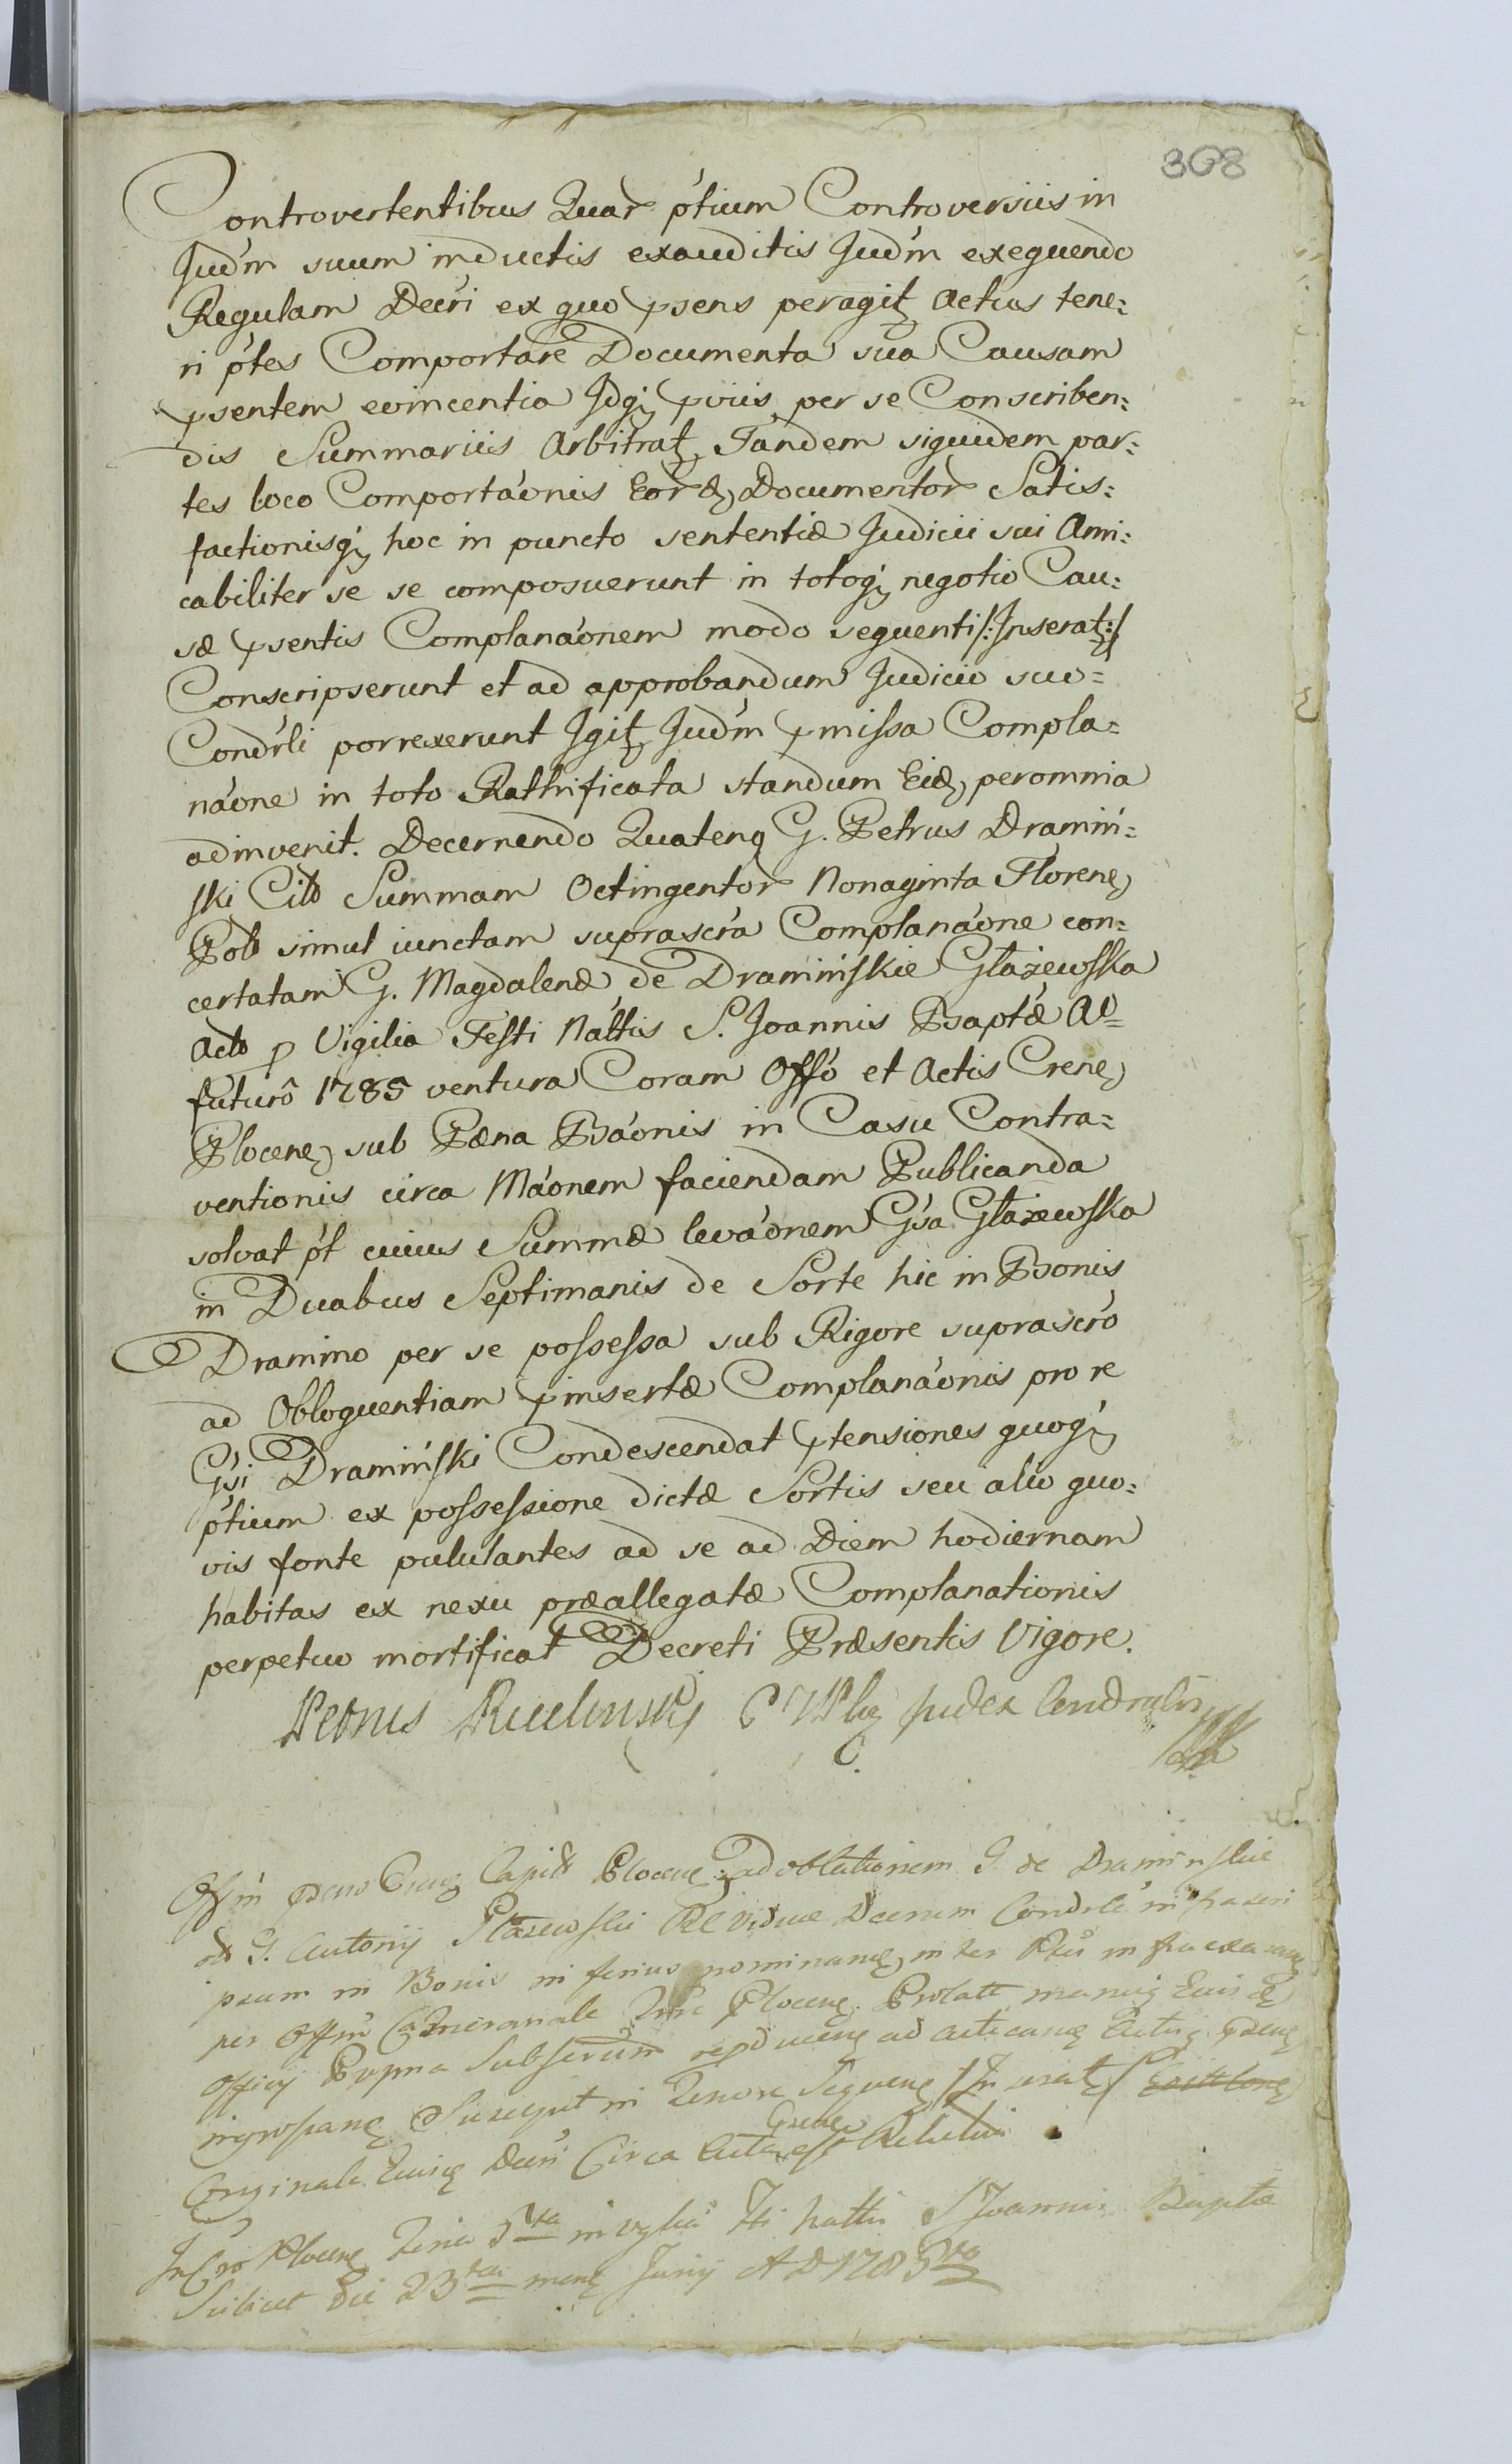 308
Controvertentibus Quar ṕtium Controversiis in
Jud́m suum inductis exauditis Jud́m exequendo
Regulam Decŕi ex quo psens peragit actus tene:
ri ṕtes Comportare Documenta sua Causam
psentem evincentia Jdq; pviis per se Conscriben:
dis Summariis Arbitrat, Tandem siquidem par:
tes loco Comportáonis Eord, Documentor Satis:
factionisq; hoc in puncto sententiæ Judicii sui Ami:
cabiliter se se composuerunt in totoq; negotio Cau:
sæ psentis Complanáonem modo sequenti /:Inserat:/
Conscripserunt et ad approbandum Judicio suo=
Cond́rli porrexerunt Igit Jud́m pmissa Compla=
náone in toto Rathificata standum Eid, peromnia
adinvenit. Decernendo Quatenq G. Petrus Dramiń:
ski Citt Summam Octingentor Nonaginta Floren,
Poll simul iunctam suprascŕa Complanáone con:
certatam G. Magdalenæ de Dramińskie Głażewska
Act p Vigilia Festi Nattis S. Joannis Baptæ AD=
futurô 1785 ventura Coram Offó et Actis Cren,
Plocen, sub Pæna Báonis in Casu Contra=
ventionis circa Máonem faciendam Publicanda
solvat pt́ cuius Summæ leváonem Gśa Głażewska
in Duabus Septimanis de Sorte hic in Bonis
Dramino per se possessa sub Rigore suprascŕo
ad Obloquentiam pinsertæ Complanáonis pro re
Gśi Dramiński Condescendat ptensiones quoq;
ṕtium ex possessione dictæ Sortis seu alio quo:
vis fonte pululantes ad se ad Diem hodiernam
habitas ex nexu præallegatæ Complanationis
perpetuo mortificat Decreti Præsentis Vigore.
Petrus Judex Condralis
Offm psens Capit Plocen: ad oblationem G. de Draminskie
G. Antonij Głazewski Viduæ Decrum Condrle infrascri
ptum in Bonis inferius nominan, inter Ptes infra
per Offm Cameranale Plocen. Prolatt manuq Eiusd
Officij Propria Subscrum ad Acticand
ingrossand Suscepit in Tenore Sequen /:Inserat:/
Originale Eiusd Decri Circa Acta Crene est Relictum
In Cro Plocen Feria 5ta in vglia Fti Nattis S Joannis Baptæ
Scilicet Die 23tia mens Junij AD 1785to